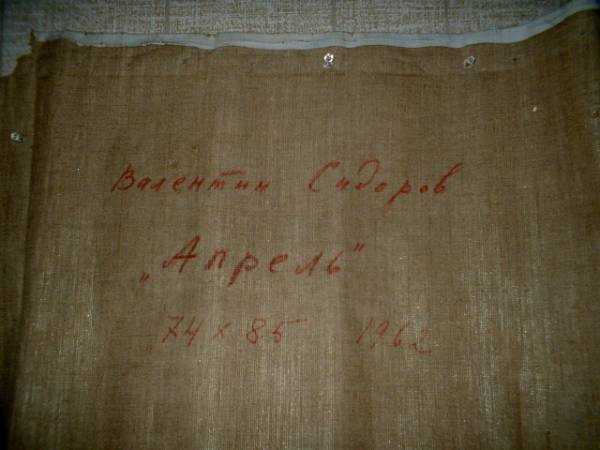 Валентин Сидоров
„Апрель"
74 x 85 1962